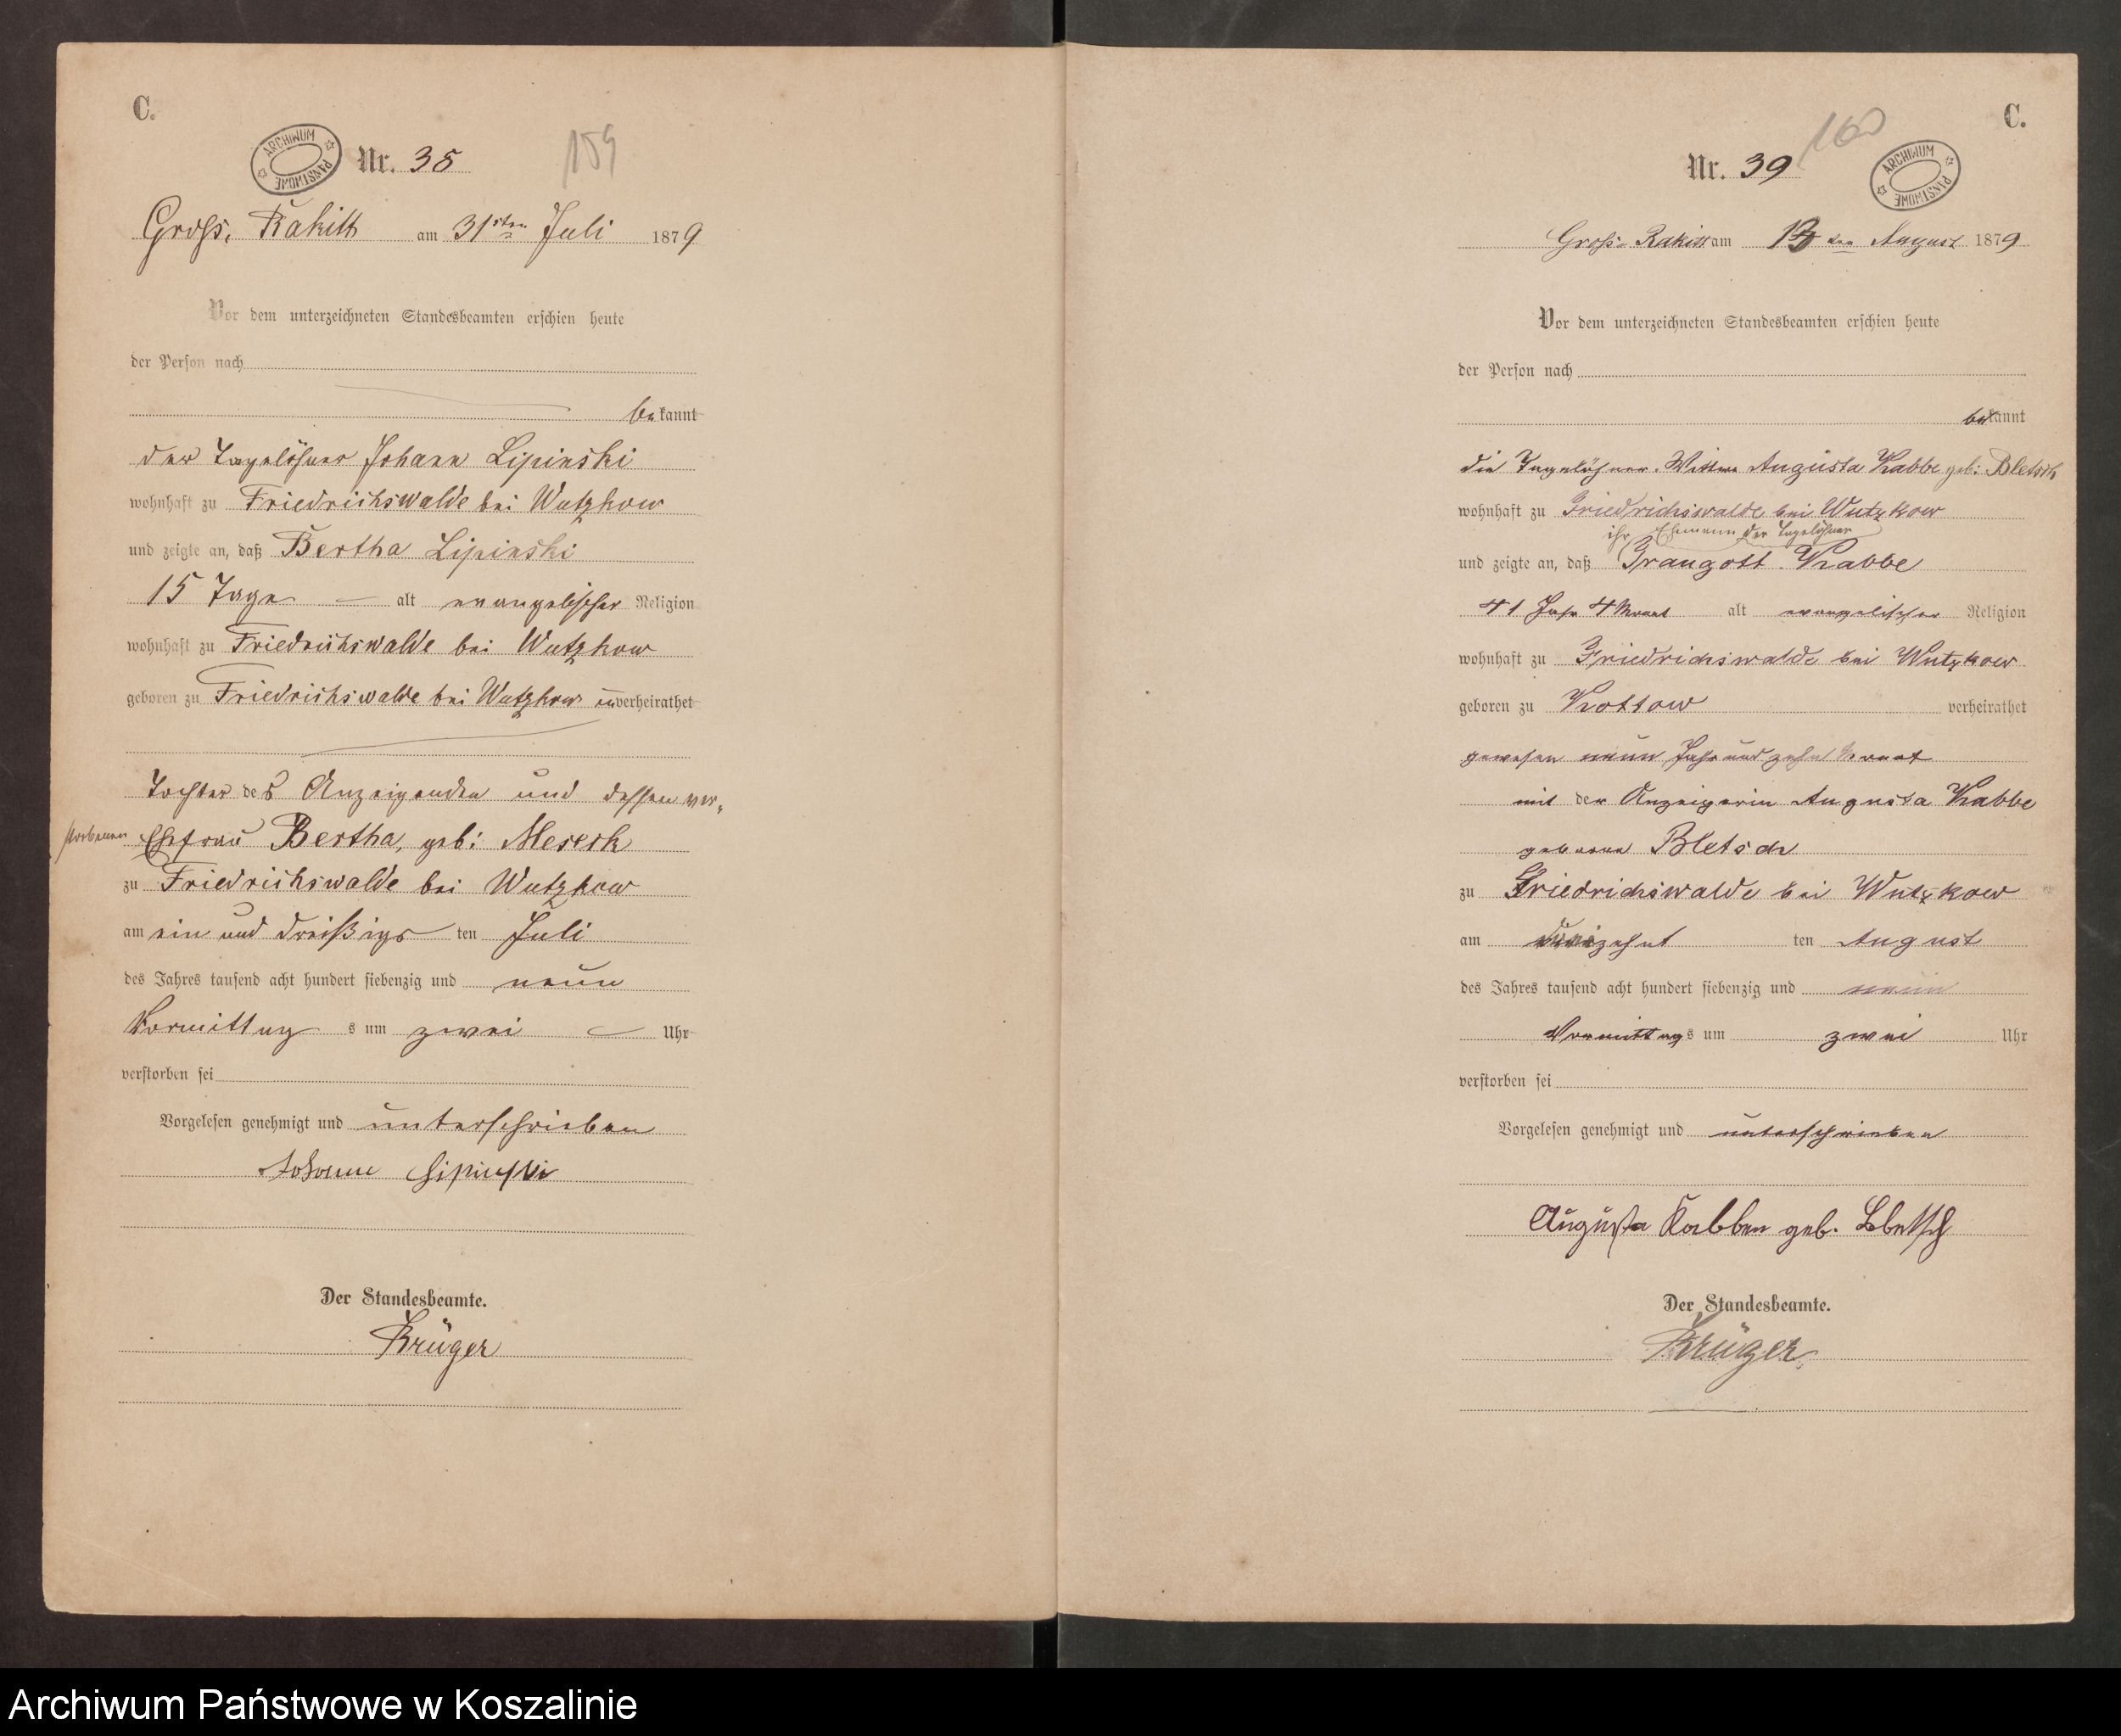 C.
ARCHIWUM PAŃSTWOWE
Nr. 38
159
Gross. Rakitt am 31sten Juli 1879
Vor dem unterzeichneten Standesbeamten erschien heute
der Person nach
bekannt
der Tagelöhner Johann Lipinski
wohnhaft zu Friedrichswalde bei Wutzkow
und zeigte an, daß Bertha Lipinski
15 Tage alt evangelischer Religion
wohnhaft zu Friedrichswalde bei Wutzkow
geboren zu Friedrichswalde bei Wutzkow unverheirathet
Tochter des Anzeigenden und dessen ver-
storbenen Ehefrau Bertha, geb: Meseck
zu Friedrichswalde bei Wutzkow
am ein und dreißigs ten Juli
des Jahres tausend acht hundert siebenzig und neun
Vormittag s um zwei Uhr
verstorben sei
Vorgelesen genehmigt und unterschrieben
Johann Lipinski
Der Standesbeamte.
Krüger
C.
160
Nr. 39
ARCHIWUM PAŃSTWOWE
Gross-Rakitt am 13 ten August 1879
Vor dem unterzeichneten Standesbeamten erschien heute
der Person nach
bekannt
die Tagelöhner-Wittwe Augusta Kabbe geb: Bletsch
wohnhaft zu Friedrichswalde bei Wutzkow
ihr Ehmann der Tagelöhner
und zeigte an, daß Traugott Kabbe
41 Jahr 4 Monat alt evangelischer Religion
wohnhaft zu Friedrichswalde bei Wutzkow
geboren zu Kottow verheirathet
gewesen neun Jahr und zehn Monat
mit der Anzeigerin Augusta Kabbe
geborene Bletsch
zu Friedrichswalde bei Wutzkow
am dreizehnt ten August
des Jahres tausend acht hundert siebenzig und neun
Vormittags um zwei Uhr
verstorben sei
Vorgelesen genehmigt und unterschrieben
Augusta Kabben geb. Bletsch
Der Standesbeamte.
Krüger.
Archiwum Państwowe w Koszalinie